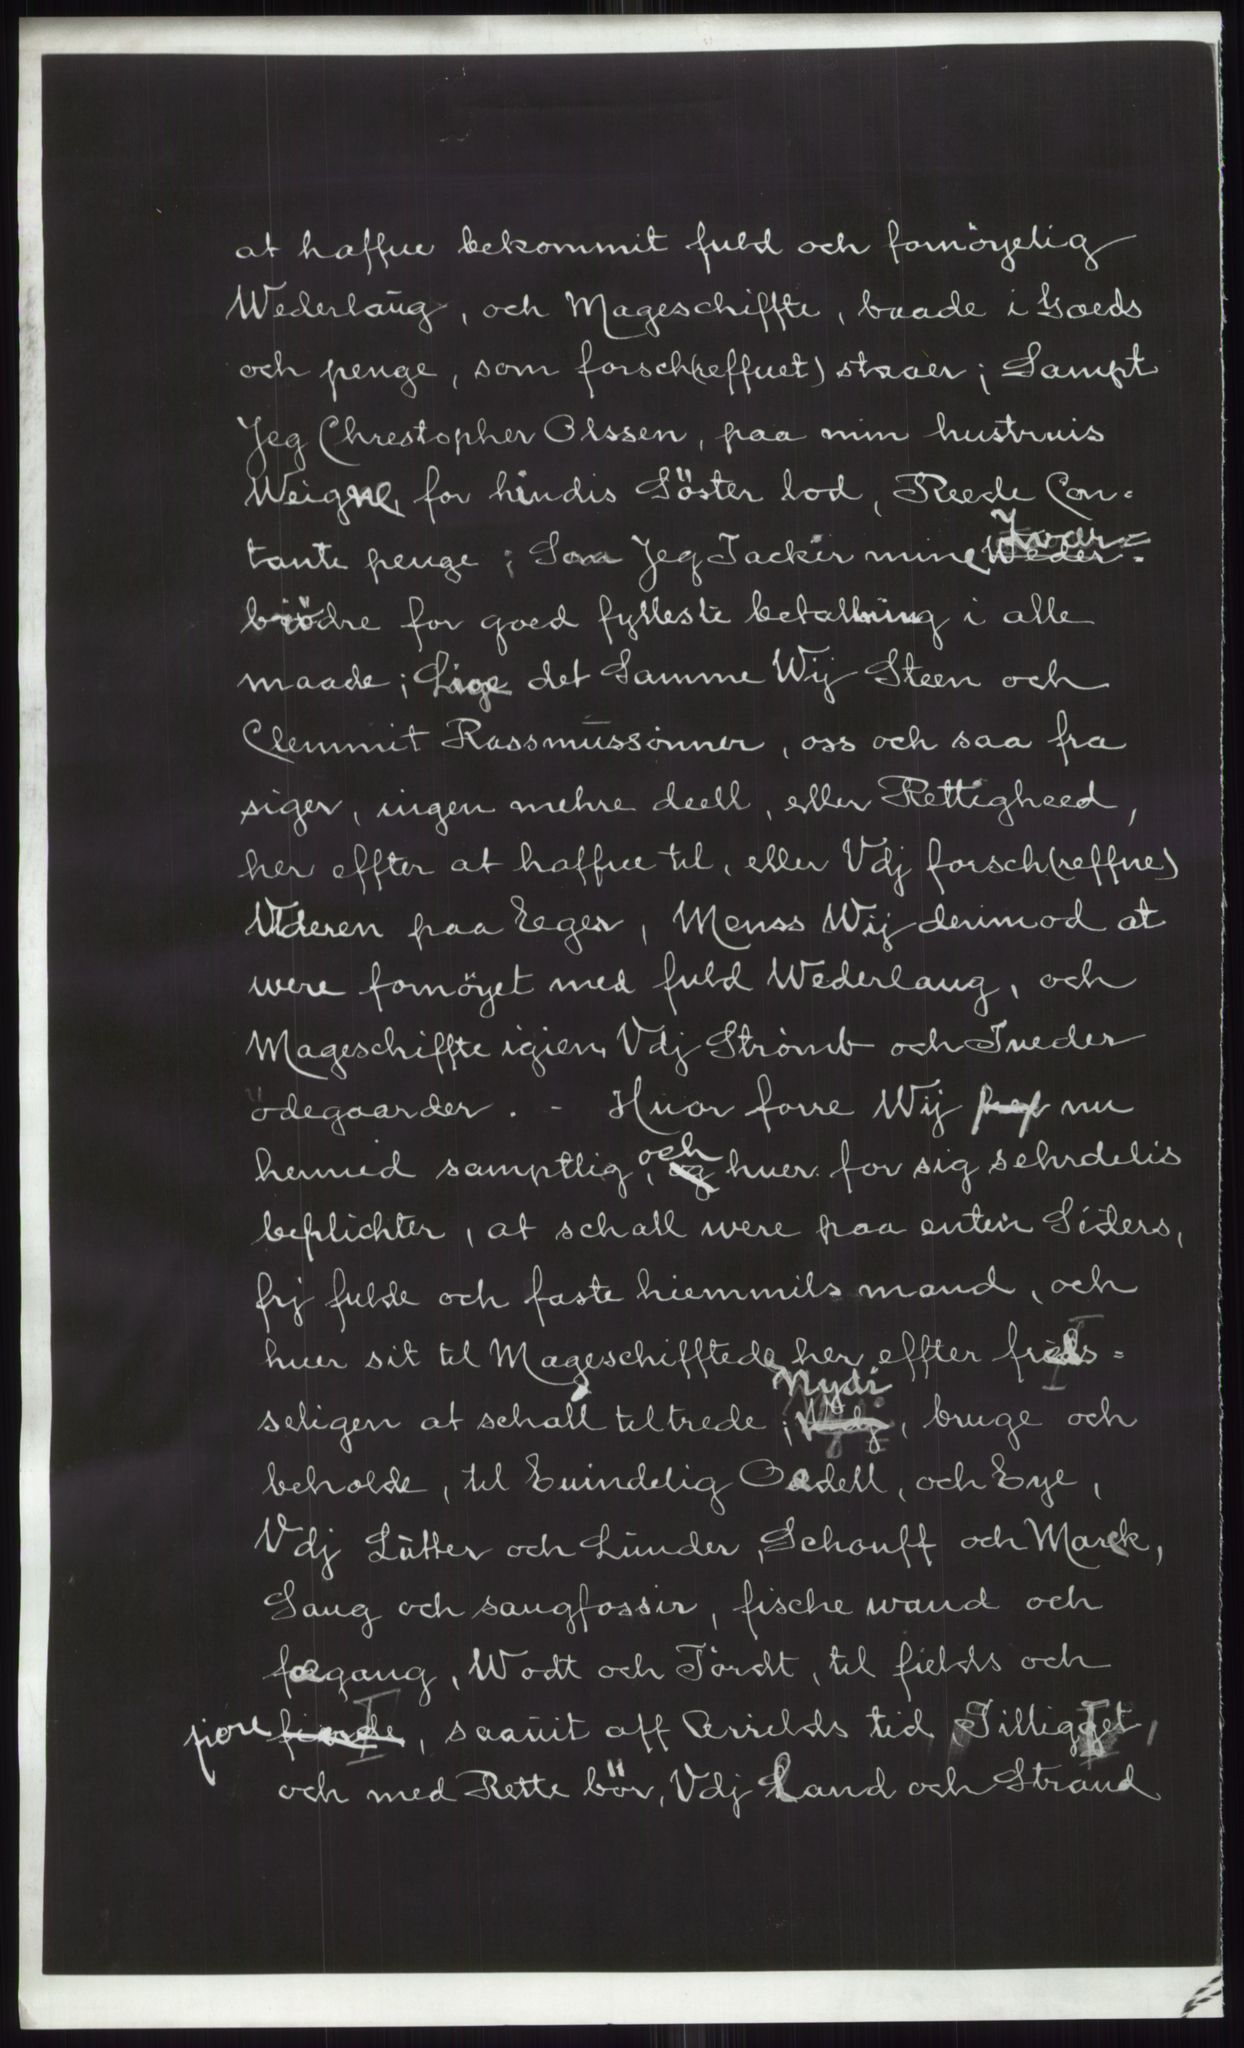 at haffue bekommit fuld och fornöyelig
Wederlaüg, och Mageschiffte, baade i Goeds
och penge, som forsch(reffuet) staaer; Sampt
Jeg Chrestopher Olssen, paa min hustruis
Weigne, for hindis Söster lod, Reede Con-
tante penge; Som Jeg Tackir mine Swar=
brödre for goed fylleste betallning i alle
maade; Lige det Samme Wij Steen och
Clemmit Rassmüssønner, oss och saa fra
siger, ingen mehre deell, eller Rettigheed,
her effter at haffue til, eller Vdj forsch(reffne)
Videren paa Eeger, Menss Wij derimod at
were fornöyet med fuld Wederlaug, och
Mageschiffte igien, Vdj Strømb och Tueder
ödegaarder. - Huor forre Wij nu
hermed samptlig, och huer for sig sehrdelis
beplichter, at schall were paa enten Siders,
frj fulde och faste hiemmils mand, och
huer sit til Mageschifftede her effter freds=
seligen at schall tiltrede; Nyde, bruge och
beholde, til Euindelig Odell, och Eye,
Vdj Lùtter och Lünder, Schouff och Marck,
Saug och saugfossir, fische wand och
fægang, Wodt och Tördt, til fields och
fiore, saauit aff Arrilds tid Tilligget,
och med Rette bör, Vdj Land och Strand